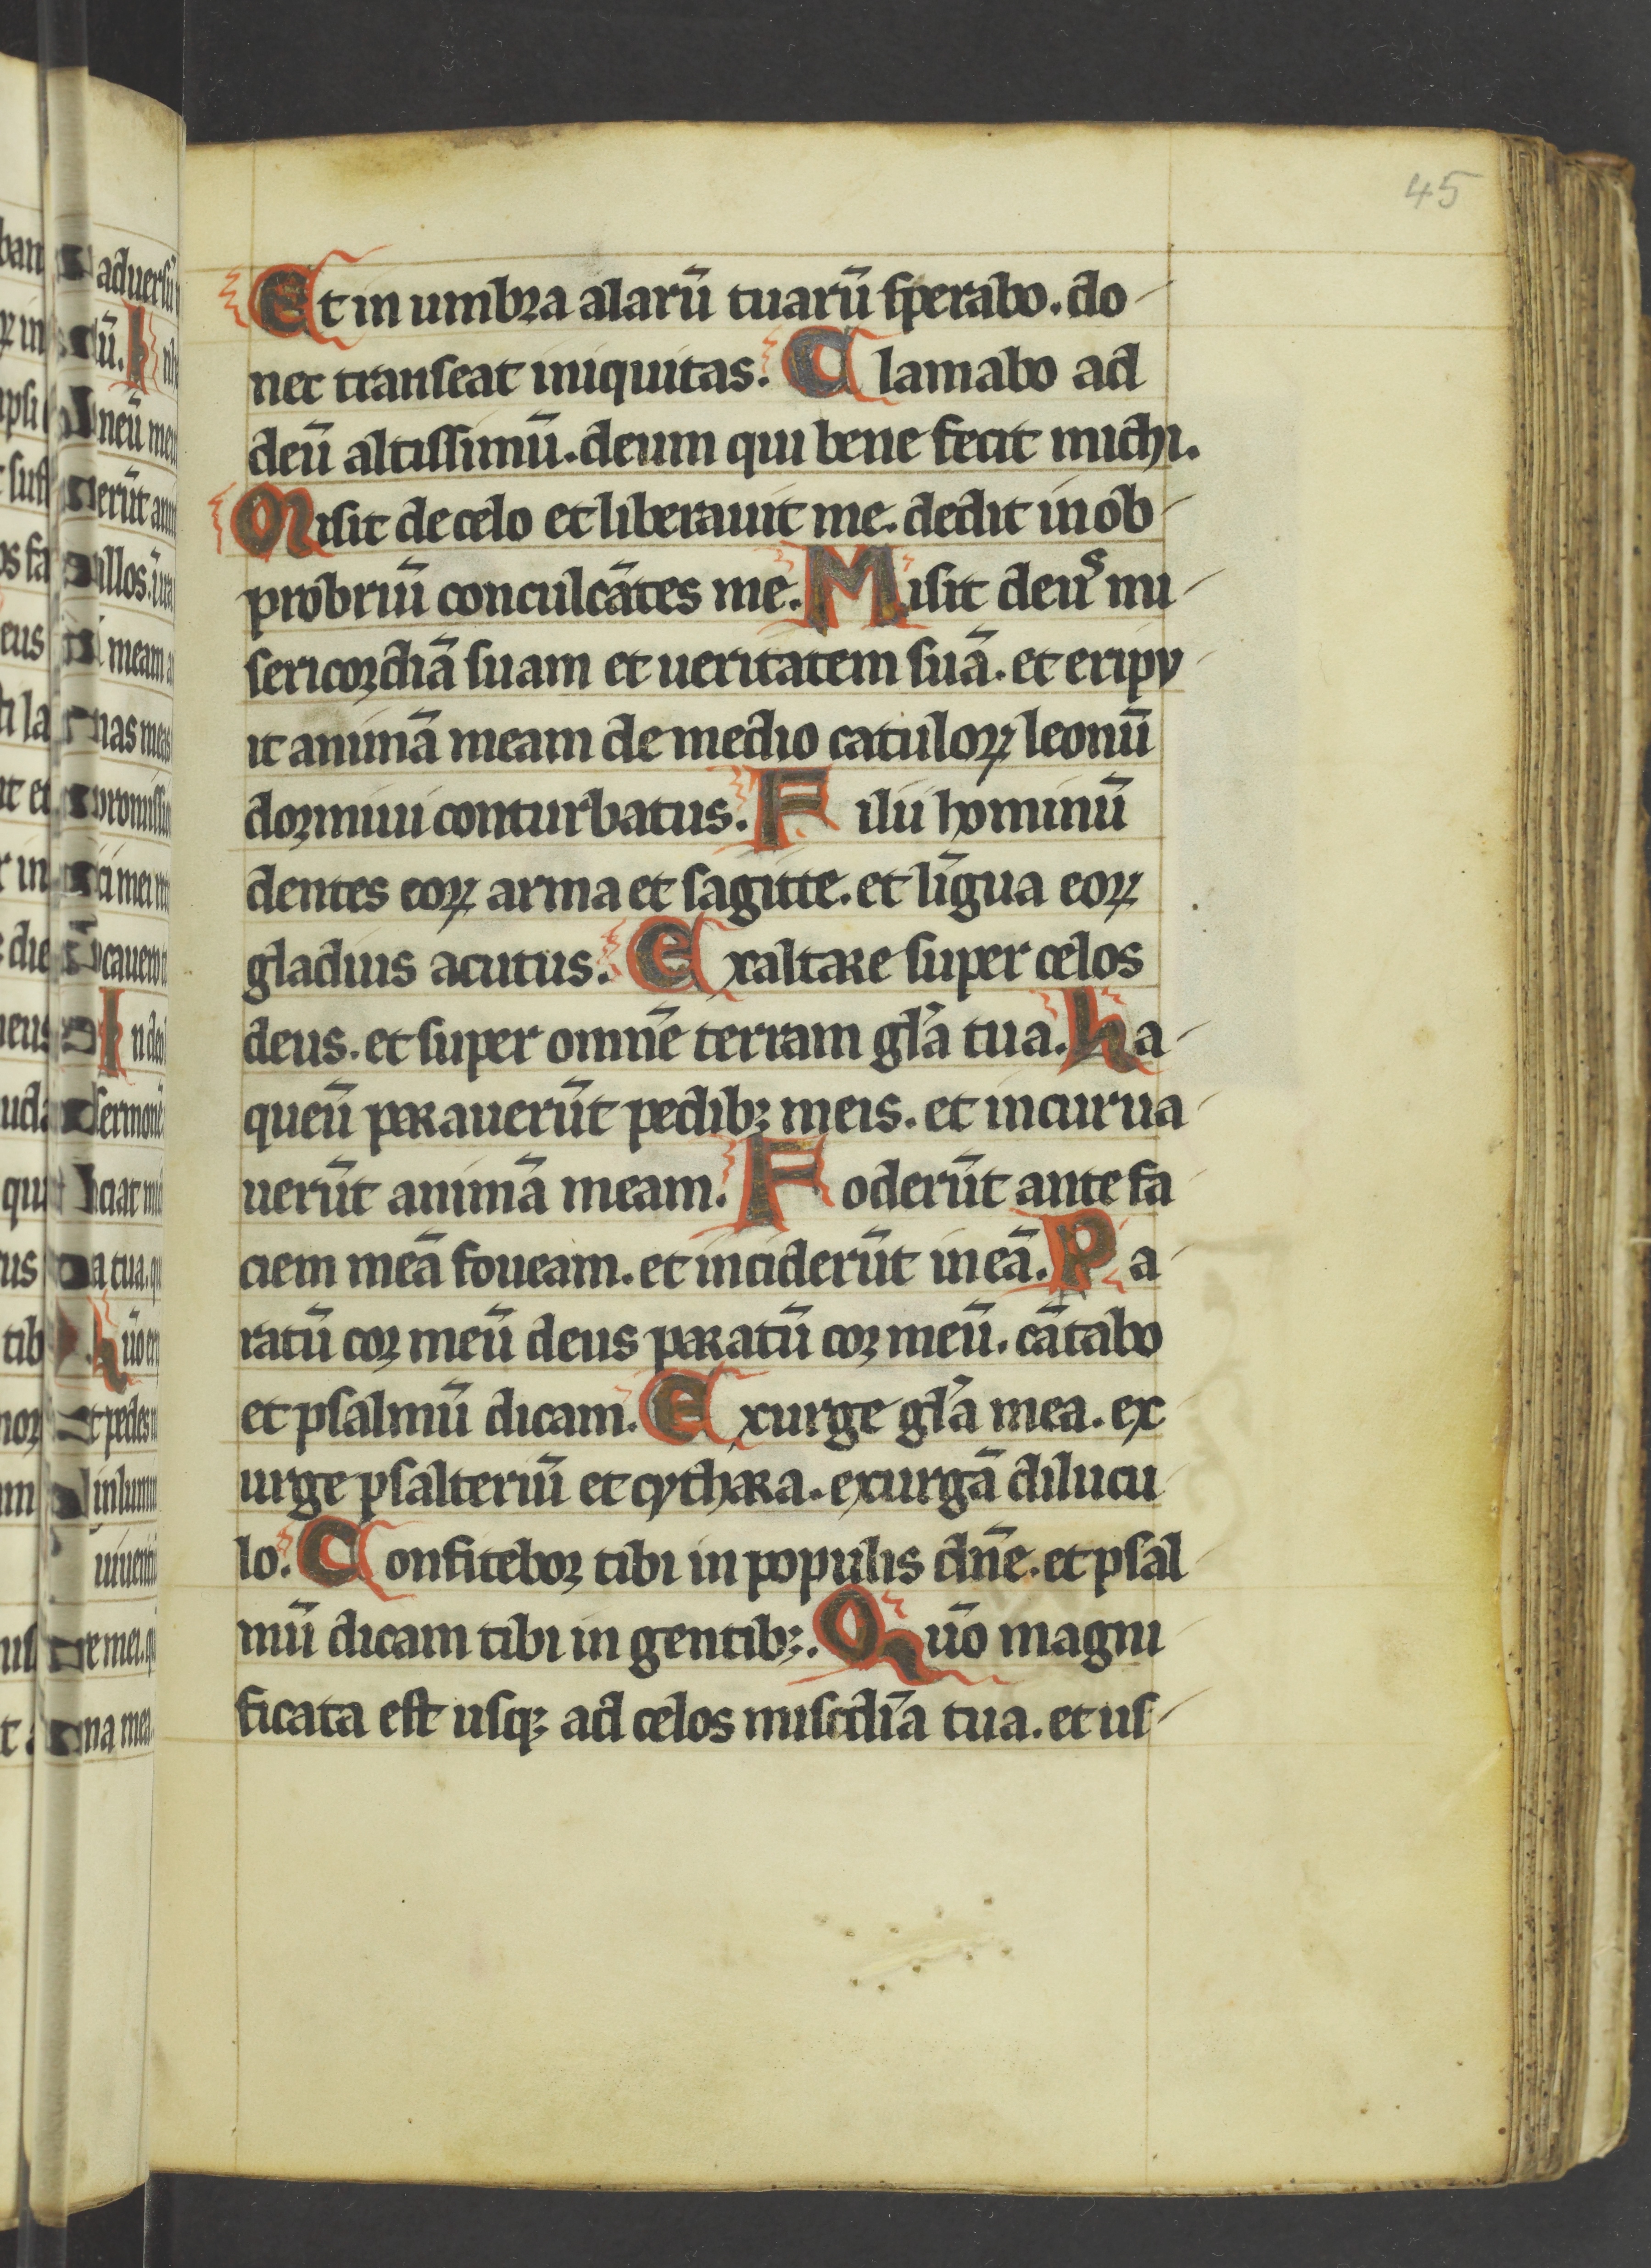 45
Et in umbra alarū tuarū sperabo. do
nec transeat iniquitas. Clamabo ad
deū altissimū. deum qui bene fecit michi.
Misit de celo et liberauit me. dedit in ob
probriū conculcātes me. Misit deus mi
sericordiā suam et ueritatem suā. et eripu
it animā meam de medio catuloꝝ leonū
dormiui conturbatus. Filii hominū
dentes eoꝝ arma et sagitte. et līgua eoꝝ
gladius acutus. Exaltare super celos
deus. et super omnē terram gl̄a tua. ha
queū parauerūt pedibꝫ meis. et incurua
uerūt animā meam. Foderūt ante fa
ciem meā foueam. et inciderūt in eā. Pa
ratū cor meū deus paratū cor meū. cātabo
et psalmū dicam. Exurge gl̄a mea. ex
urge psalteriū et cythara. exurgā dilucu
lo. Confitebor tibi in populis dn̄e. et psal
mū dicam tibi in gentibꝫ. Qūo magni
ficata est usqꝫ ad celos miscd̄ia tua. et us